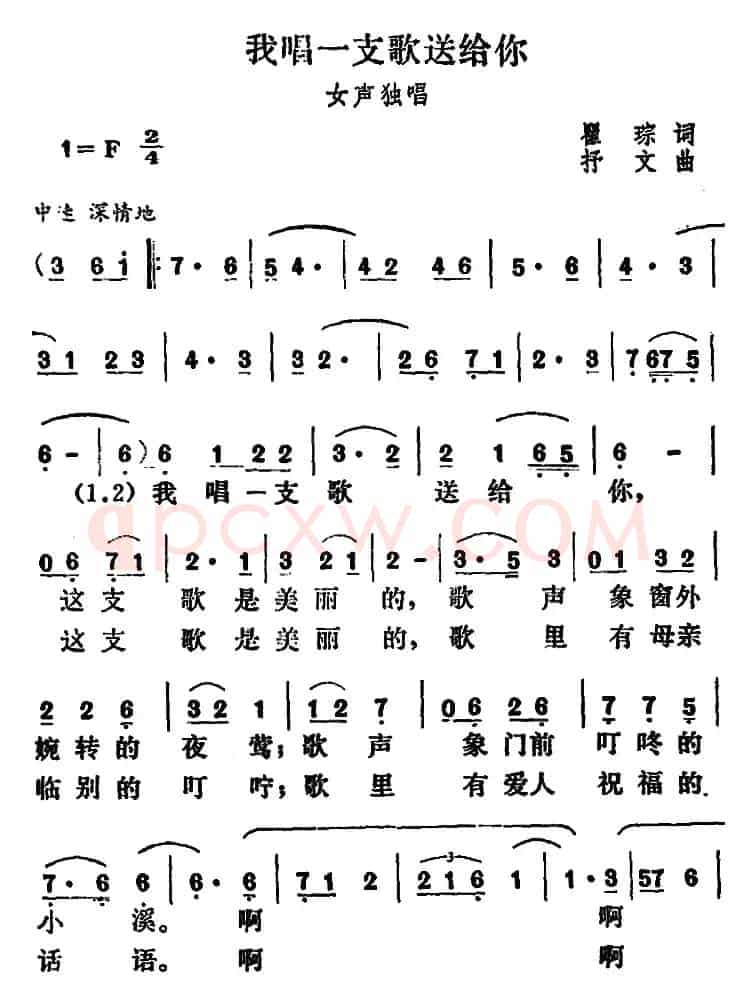 我唱一支歌送给你
女声独唱
1=F 2/4
瞿 琮 词
抒 文 曲
中速 深情地
(3 6 i ‖: 7· 6 | 5 4· | 4 2 4 6 | 5· 6 | 4· 3 |
3 1 2 3 | 4· 3 | 3 2· | 2 6 7 1 | 2· 3 | 7 6 7 5 |
6 - | 6) 6 1 2 2 | 3· 2 | 2 1 6 5 | 6 - |
(1.2)我 唱一支 歌 送 给 你,
0 6 7 1 | 2· 1 | 3 2 1 | 2 - | 3· 5 3 | 0 1 3 2 |
这支 歌是美丽 的,歌 声 象窗外
这支 歌是美丽 的,歌 里 有母亲
2 2 6 | 3 2 1 | 1 2 7 | 0 6 2 6 | 7 7 5 |
婉转的 夜 莺;歌 声 象门前 叮咚的
临别的 叮 咛;歌 里 有爱人 祝福的
7· 6 6 | 6· 6 | 7 1 2 | 2 1 6 1 | 1· 3 | 5 7 6 |
3
小 溪。 啊 啊
话 语。 啊 啊
qpcxw.COM